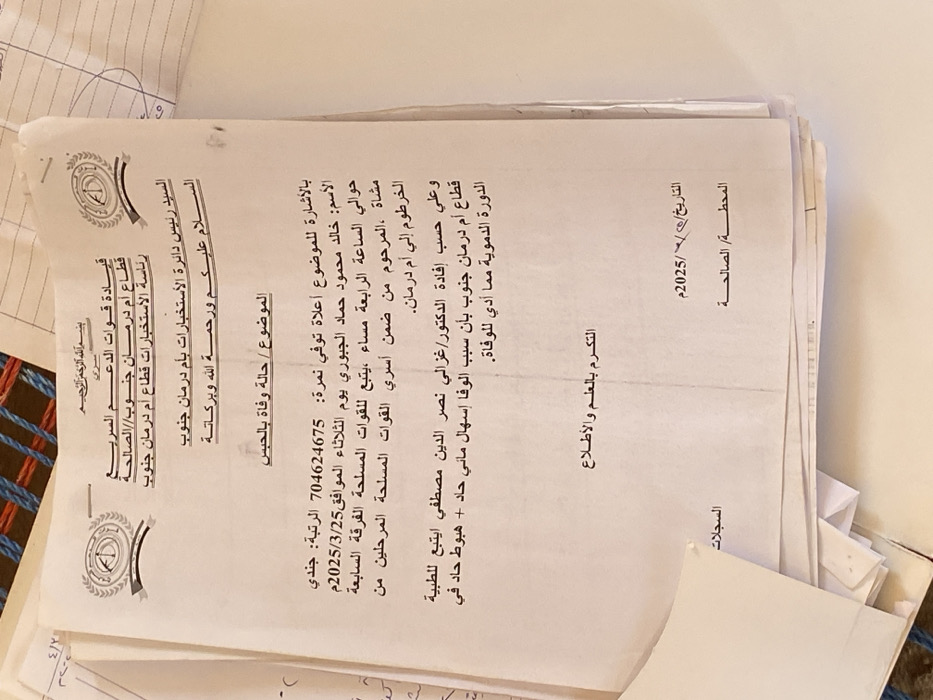 بسم الله الرحمن الرحيم
قيادة قوات الدعم السريع
قطاع أم درمان جنوب//الصالحة
رئاسة الأستخبارات قطاع أم درمان جنوب
السيد رئيس دائرة الأستخبارات بأم درمان جنوب
السلام عليكم ورحمة الله وبركاتة
الموضوع / حالة وفاة بالحبس
بالأشارة للموضوع أعلاة توفي نمرة: 704624675 الرتبة: جندي
الأسم: خالد محمود حماد الجبوري يوم الثلاثاء الموافق2025/3/25م
حوالي الساعة الرابعة مساء ،يتبع للقوات المسلحة الفرقة السابعة
مشاة ،المرحوم من ضمن أسري القوات المسلحة المرحلين من
الخرطوم إلي أم درمان.
وعلي حسب إفادة الدكتور/غزالي نصر الدين مصطفي ايتبع للطبية
قطاع أم درمان جنوب بأن سبب الوفا إسهال مائي حاد + هبوط حاد في
الدورة الدموية مما أدي للوفاة.
التكرم بالعلم والأطلاع
التاريخ/ /2025م
المحطة/ الصالحة
السجلات